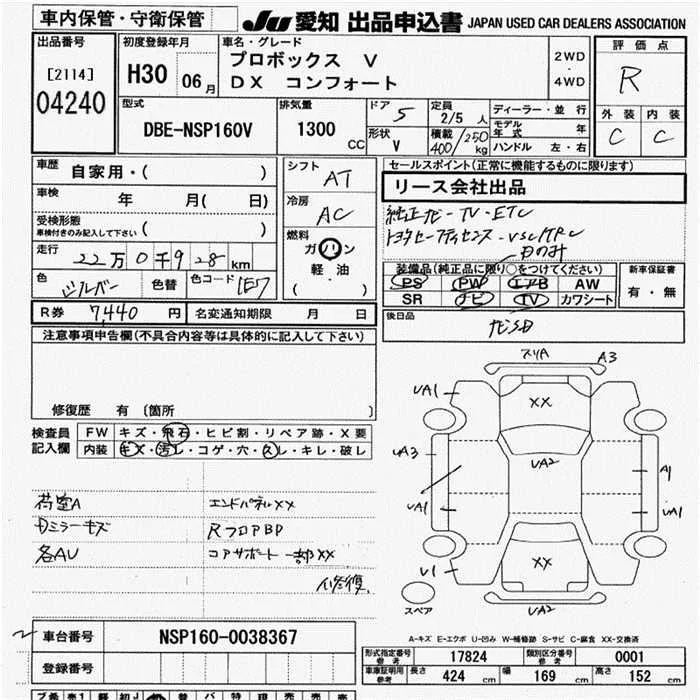 車内保管・守衛保管
JU 愛知 出品申込書 JAPAN USED CAR DEALERS ASSOCIATION
出品番号
[2114]
04240
初度登録年月
H30 06月
車名・グレード
プロボックス V
DX コンフォート
2WD
・
4WD
評価点
R
外装 内装
C C
型式
DBE-NSP160V
排気量
1300
CC
ドア 5
形状 V
定員 2/5 人
積載 400/250 kg
ディーラー・並行
モデル年式 年
ハンドル 左・右
車歴 自家用・( )
車検 年 月( 日)
受検形態
車検付きのみ記入して下さい ( )
走行 22万0千928km
色 シルバー 色替 色コード 1E7
シフト AT
冷房 AC
燃料
ガソリン
軽油
( )
セールスポイント(正常に機能するものに限ります)
リース会社出品
純正ナビ-TV-ETC
欠品のみ
装備品(純正品に限り○をつけてください)
PS PW エアB AW
SR ナビ TV カワシート
新車保証書
有・無
R券 7,440 円
名変通知期限 月 日
後日品
ナビSD
注意事項申告欄(不具合内容等は具体的に記入して下さい)
修復歴 有 〔箇所 〕
検査員
記入欄
FW キズ・飛石・ヒビ割・リペア跡・X要
内装 キズ・汚レ・コゲ・穴・スレ・キレ・破レ
荷室A
Dミラーキズ
各AU
エンドパネルXX
RフロアBP
コアサポート一部XX
修復
スリA
A3
UA1
XX
UA2
UA3
A1
UA1
UA1
XX
V1
UA2
スペア
A-キズ E-エクボ U-凹み W-補修跡 S-サビ C-腐食 XX-交換済
車台番号 NSP160-0038367
登録番号
形式指定番号
参考
17824
類別区分番号
参考
0001
車庫証明用
参考
長さ 424 cm
幅 169 cm
高さ 152 cm